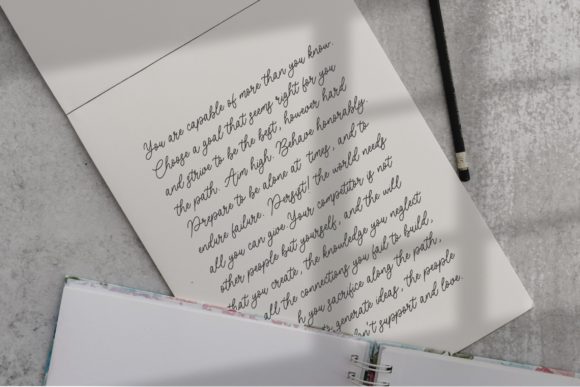 You are capable of more than you know.
Choose a goal that seems right for you
and strive to be the best, however hard
the path. Aim high. Behave honorably.
Prepare to be alone at times, and to
endure failure. Persist! the world needs
all you can give.Your competitor is not
other people but yourself, and the will
that you create, the knowledge you neglect
all the connections you fail to build,
you sacrifice along the path,
generate ideas, the people
support and love.